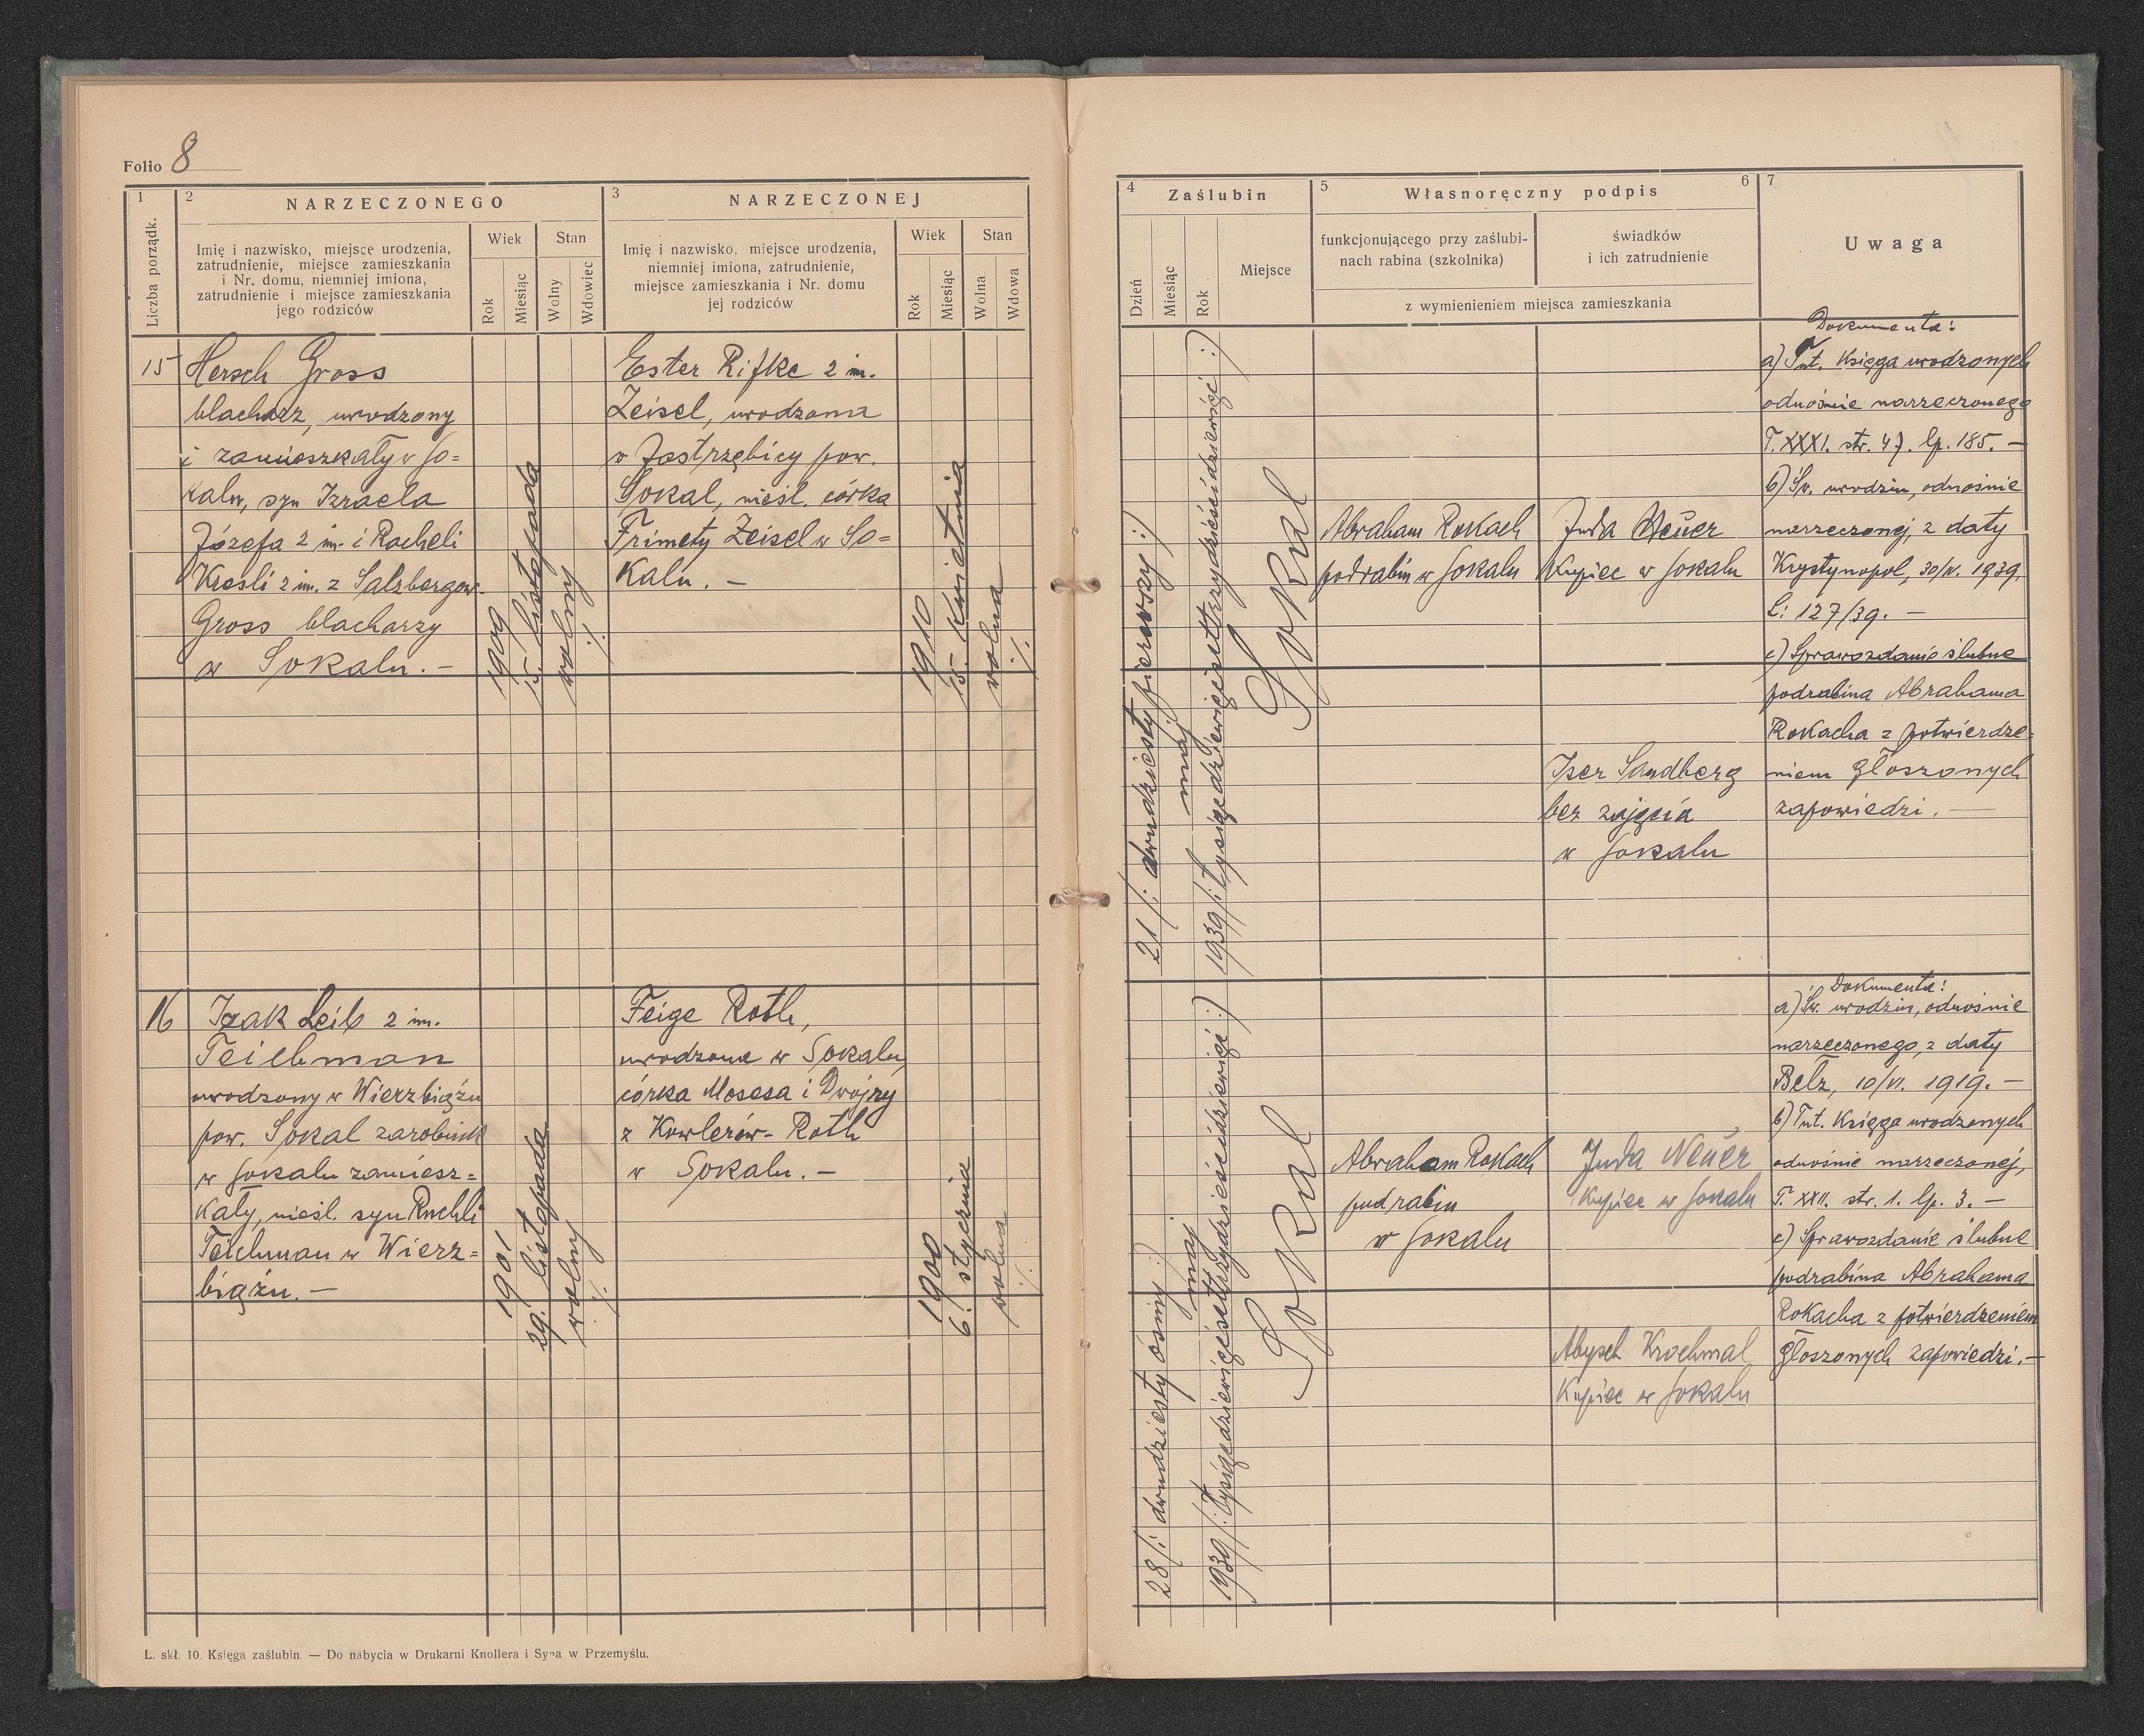 Folio 8
1
2
NARZECZONEGO
3
NARZECZONEJ
Liczba porządk.
Imię i nazwisko, miejsce urodzenia,
zatrudnienie, miejsce zamieszkania
i Nr. domu, niemniej imiona,
zatrudnienie i miejsce zamieszkania
jego rodziców
Wiek
Stan
Rok
Miesiąc
Wolny
Wdowiec
Imię i nazwisko, miejsce urodzenia,
niemniej imiona, zatrudnienie,
miejsce zamieszkania i Nr. domu
jej rodziców
Wiek
Stan
Rok
Miesiąc
Wolna
Wdowa
15
Hersch Gross
blacharz, urodzony
i zamieszkały w So=
kalu, syn Izraela
Józefa 2 im. i Racheli
Kresli 2 im. z Salzbergow-
Gross blacharzy
w Sokalu. —
1909
15. listopada
wolny
·/.
Ester Rifke 2 im.
Zeisel, urodzona
w Jastrzębicy pow.
Sokal, nieśl. córka
Frimety Zeisel w So=
kalu. —
1910
15. kwietnia
wolna
·/.
16
Izak Leib 2 im.
Teichman
urodzony w Wierzbiążu
pow. Sokal zarobnik
w Sokalu zamiesz=
kały, nieśl. syn Ruchli
Teichman w Wierz=
biążu. —
1901
29. listopada
wolny
·/.
Feige Roth,
urodzona w Sokalu,
córka Mosesa i Dwojry
z Kowlerów- Roth
w Sokalu. —
1900
6. stycznia
wolna
·/.
L. skł. 10. Księga zaślubin. — Do nabycia w Drukarni Knollera i Syna w Przemyślu.
4
Zaślubin
5
Własnoręczny podpis
6
7
Dzień
Miesiąc
Rok
Miejsce
funkcjonującego przy zaślubi-
nach rabina (szkolnika)
świadków
i ich zatrudnienie
z wymienieniem miejsca zamieszkania
Uwaga
21 /: dwudziesty pierwszy :/
maj
1939 /: tysiącdziewięćsettrzydzieścidziewięć :/
Sokal
Abraham Rokach
podrabin w Sokalu
Juda Neuer
Kupiec w Sokalu
Iser Sandberg
bez zajęcia
w Sokalu
Dokumenta:
a) Tut. Księga urodzonych
odnośnie narzeczonego
T. XXXI. str. 47. lp. 185. —
b) Św. urodzin, odnośnie
narzeczonej, z daty
Krystynopol, 30/IV. 1939,
L: 127/39. —
c) Sprawozdanie ślubne
podrabina Abrahama
Rokacha z potwierdze=
niem głoszonych
zapowiedzi. —
28 /: dwudziesty ósmy :/
maj
1939 /: tysiącdziewięćsettrzydzieścidziewięć :/
Sokal
Abraham Rokach
podrabin
w Sokalu
Juda Neuer
Kupiec w Sokalu
Abysch Krochmal
Kupiec w Sokalu
Dokumenta:
a) Św. urodzin, odnośnie
narzeczonego, z daty
Belz, 10/VI. 1919. —
b) Tut. Księga urodzonych
odnośnie narzeczonej,
T. XXII. str. 1. lp. 3. —
c) Sprawozdanie ślubne
podrabina Abrahama
Rokacha z potwierdzeniem
głoszonych zapowiedzi. —